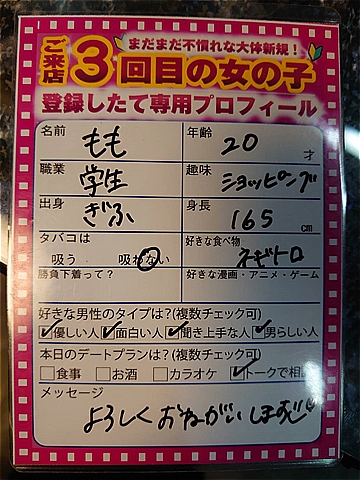 まだまだ不慣れな大体新規!
ご来店3回目の女の子
登録したて専用プロフィール
名前 もも 年齢 20 才
職業 学生 趣味 ショッピング
出身 ぎふ 身長 165 cm
タバコは 好きな食べ物
吸う 吸わない ネギトロ
勝負下着って? 好きな漫画・アニメ・ゲーム
好きな男性のタイプは?(複数チェック可)
優しい人 面白い人 聞き上手な人 男らしい人
本日のデートプランは?(複数チェック可)
食事 お酒 カラオケ トークで相
メッセージ
よろしくおねがいします♡